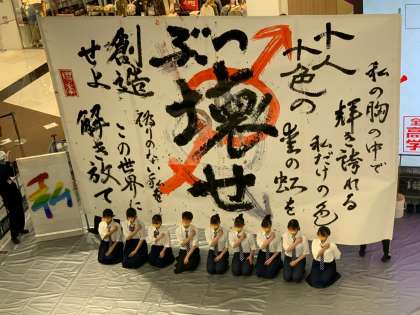 私の胸の中で
輝き誇れる
私だけの色
十人
十色の
の虹を
ぶっ
壊せ
創造
せよ
偽りのない
この世界に
解き放て
私